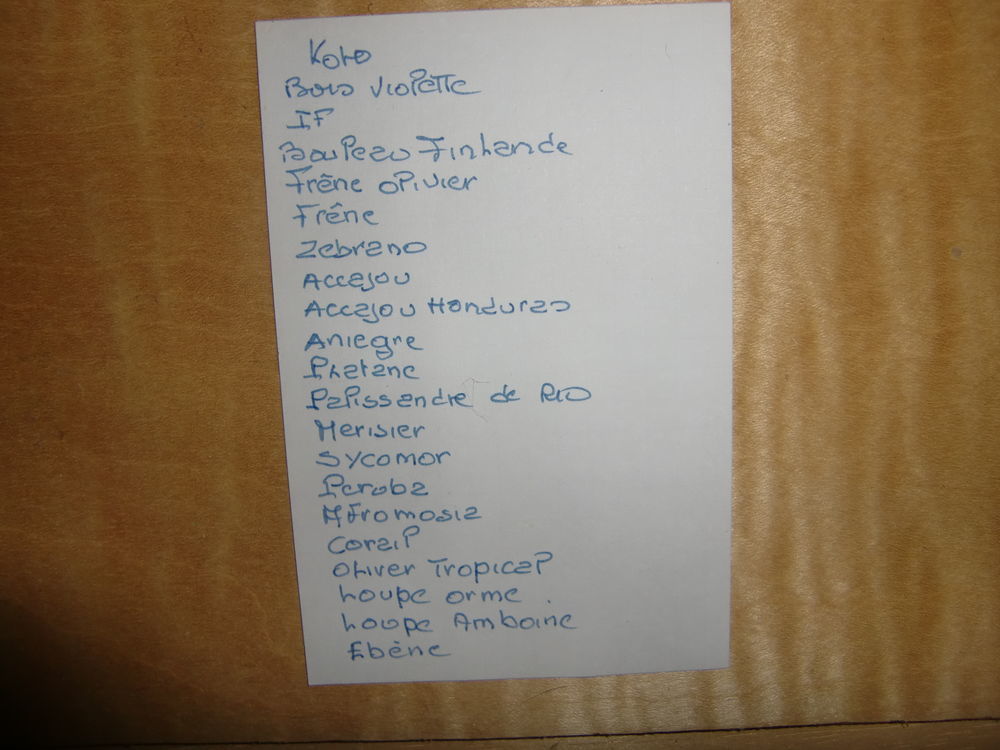 Koto
Bois violette
IF
Bouleau Finlande
Frêne olivier
Frêne
Zebrano
Accajou
Accajou Honduras
Aniegre
Platane
Palissandre de Rio
Merisier
Sycomor
Peroba
Afromosia
Corail
Oliver Tropical
Loupe orme
Loupe Amboine
Ebène